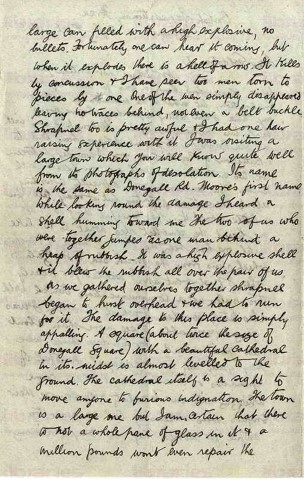 large can filled with a high explosive, no
bullets. Fortunately one can hear it coming, but
when it explodes there is a hell of a row. It kills
by concussion & I have seen two men torn to
pieces by one. One of the men simply disappeared
leaving no traces behind, not even a belt buckle.
Shrapnel too is pretty awful & I had one hair
raising experience with it. I was visiting a
large town which you will know quite well
from its photographs of desolation. Its name
is the same as Donegall Rd. Moore's first name
While looking round the damage I heard a
shell humming toward me. The two of us who
were together jumped as one man behind a
heap of rubbish. It was a high explosive shell
& it blew the rubbish all over the pair of us.
As we gathered ourselves together shrapnel
began to burst overhead & we had to run
for it. The damage to this place is simply
appalling. A square (about twice the size of
Donegall Square) with a beautiful cathedral
in its midst is almost levelled to the
ground. The cathedral itself is a sight to
move anyone to furious indignation. The town
is a large one but I am certain that there
is not a whole pane of glass in it & a
million pounds wont even repair the